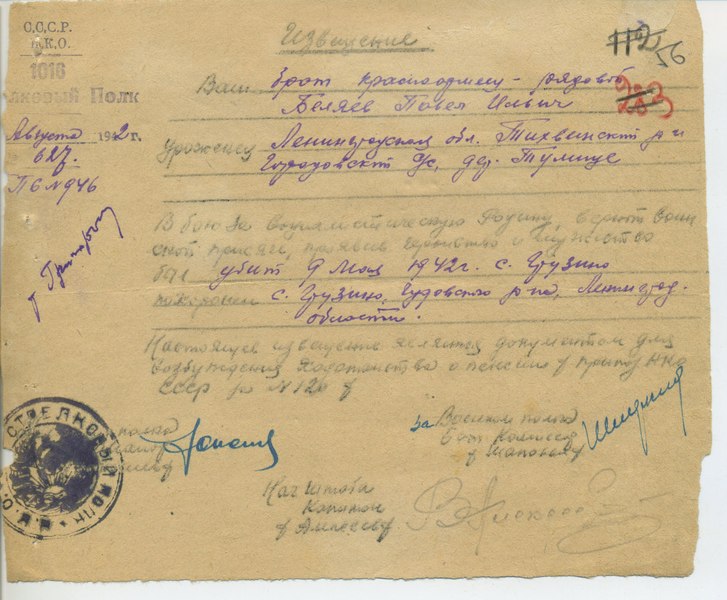 С.С.С.Р.
Н.К.О.
1016
лковый Полк
Августа 1942 г.
627.
П6 №946
Извещение
56
Ваш брат красноармеец - рядовой
Беляев Павел Ильич
Уроженец Ленинградская обл. Тихвинский р-н
Городокский с/с, дер. Тулище
В бою за социалистическую Родину, верный воин-
ской присяге, проявив геройство и мужество
был убит 9 мая 1942 г. с. Грузино
похоронен с. Грузино, Чудовского р-на, Ленинград.
области.
Настоящее извещение является документом для
возбуждения ходатайства о пенсии (приказ НКО
СССР № 120)
полка
За Военком полка
Бат. Комиссар
Нач Штаба
Капитан
СТРЕЛКОВЫЙ ПОЛК